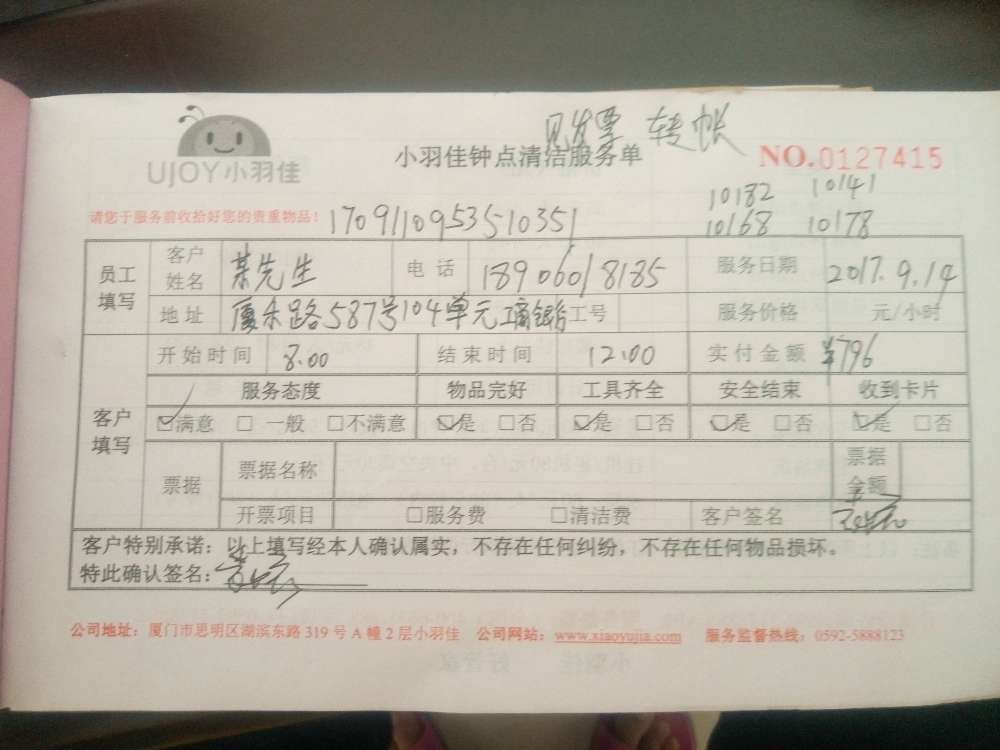 见发票 转帐
UJOY小羽佳
小羽佳钟点清洁服务单
NO.0127415
10182 10141
请您于服务前收拾好您的贵重物品！ 1709110953510351 10168 10178
员工填写 客户姓名 先生 电话 18906018185 服务日期 2017.9.14
地址 厦禾路587号104单元工商银 工号 服务价格 元/小时
客户填写 开始时间 8.00 结束时间 12.00 实付金额 ¥796
服务态度 物品完好 工具齐全 安全结束 收到卡片
☑满意 □一般 □不满意 ☑是 □否 ☑是 □否 ☑是 □否 ☑是 □否
票据 票据名称 票据金额
开票项目 □服务费 □清洁费 客户签名
客户特别承诺：以上填写经本人确认属实，不存在任何纠纷，不存在任何物品损坏。
特此确认签名：
公司地址：厦门市思明区湖滨东路 319 号 A 幢 2 层小羽佳 公司网站：www.xiaoyujia.com 服务监督热线：0592-5888123